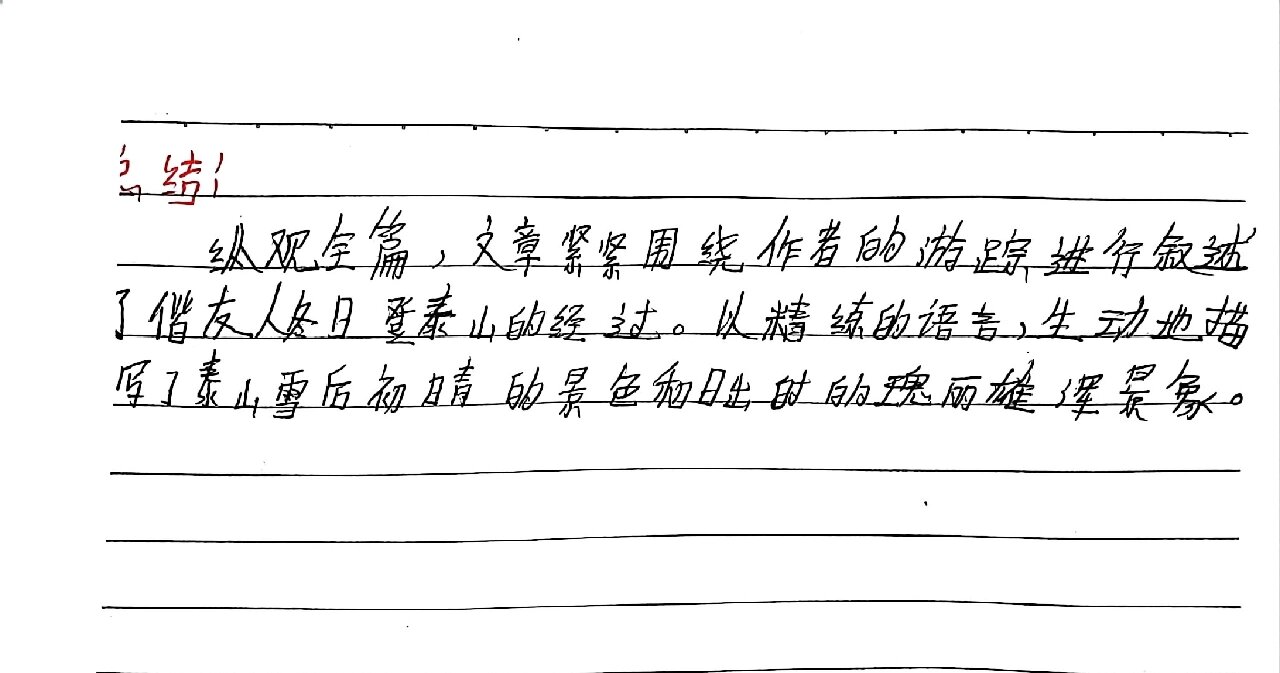 总结：
纵观全篇，文章紧紧围绕作者的游踪进行叙述
了偕友人冬日登泰山的经过。以精练的语言，生动地描
写了泰山雪后初晴的景色和日出时的瑰丽雄浑景象。